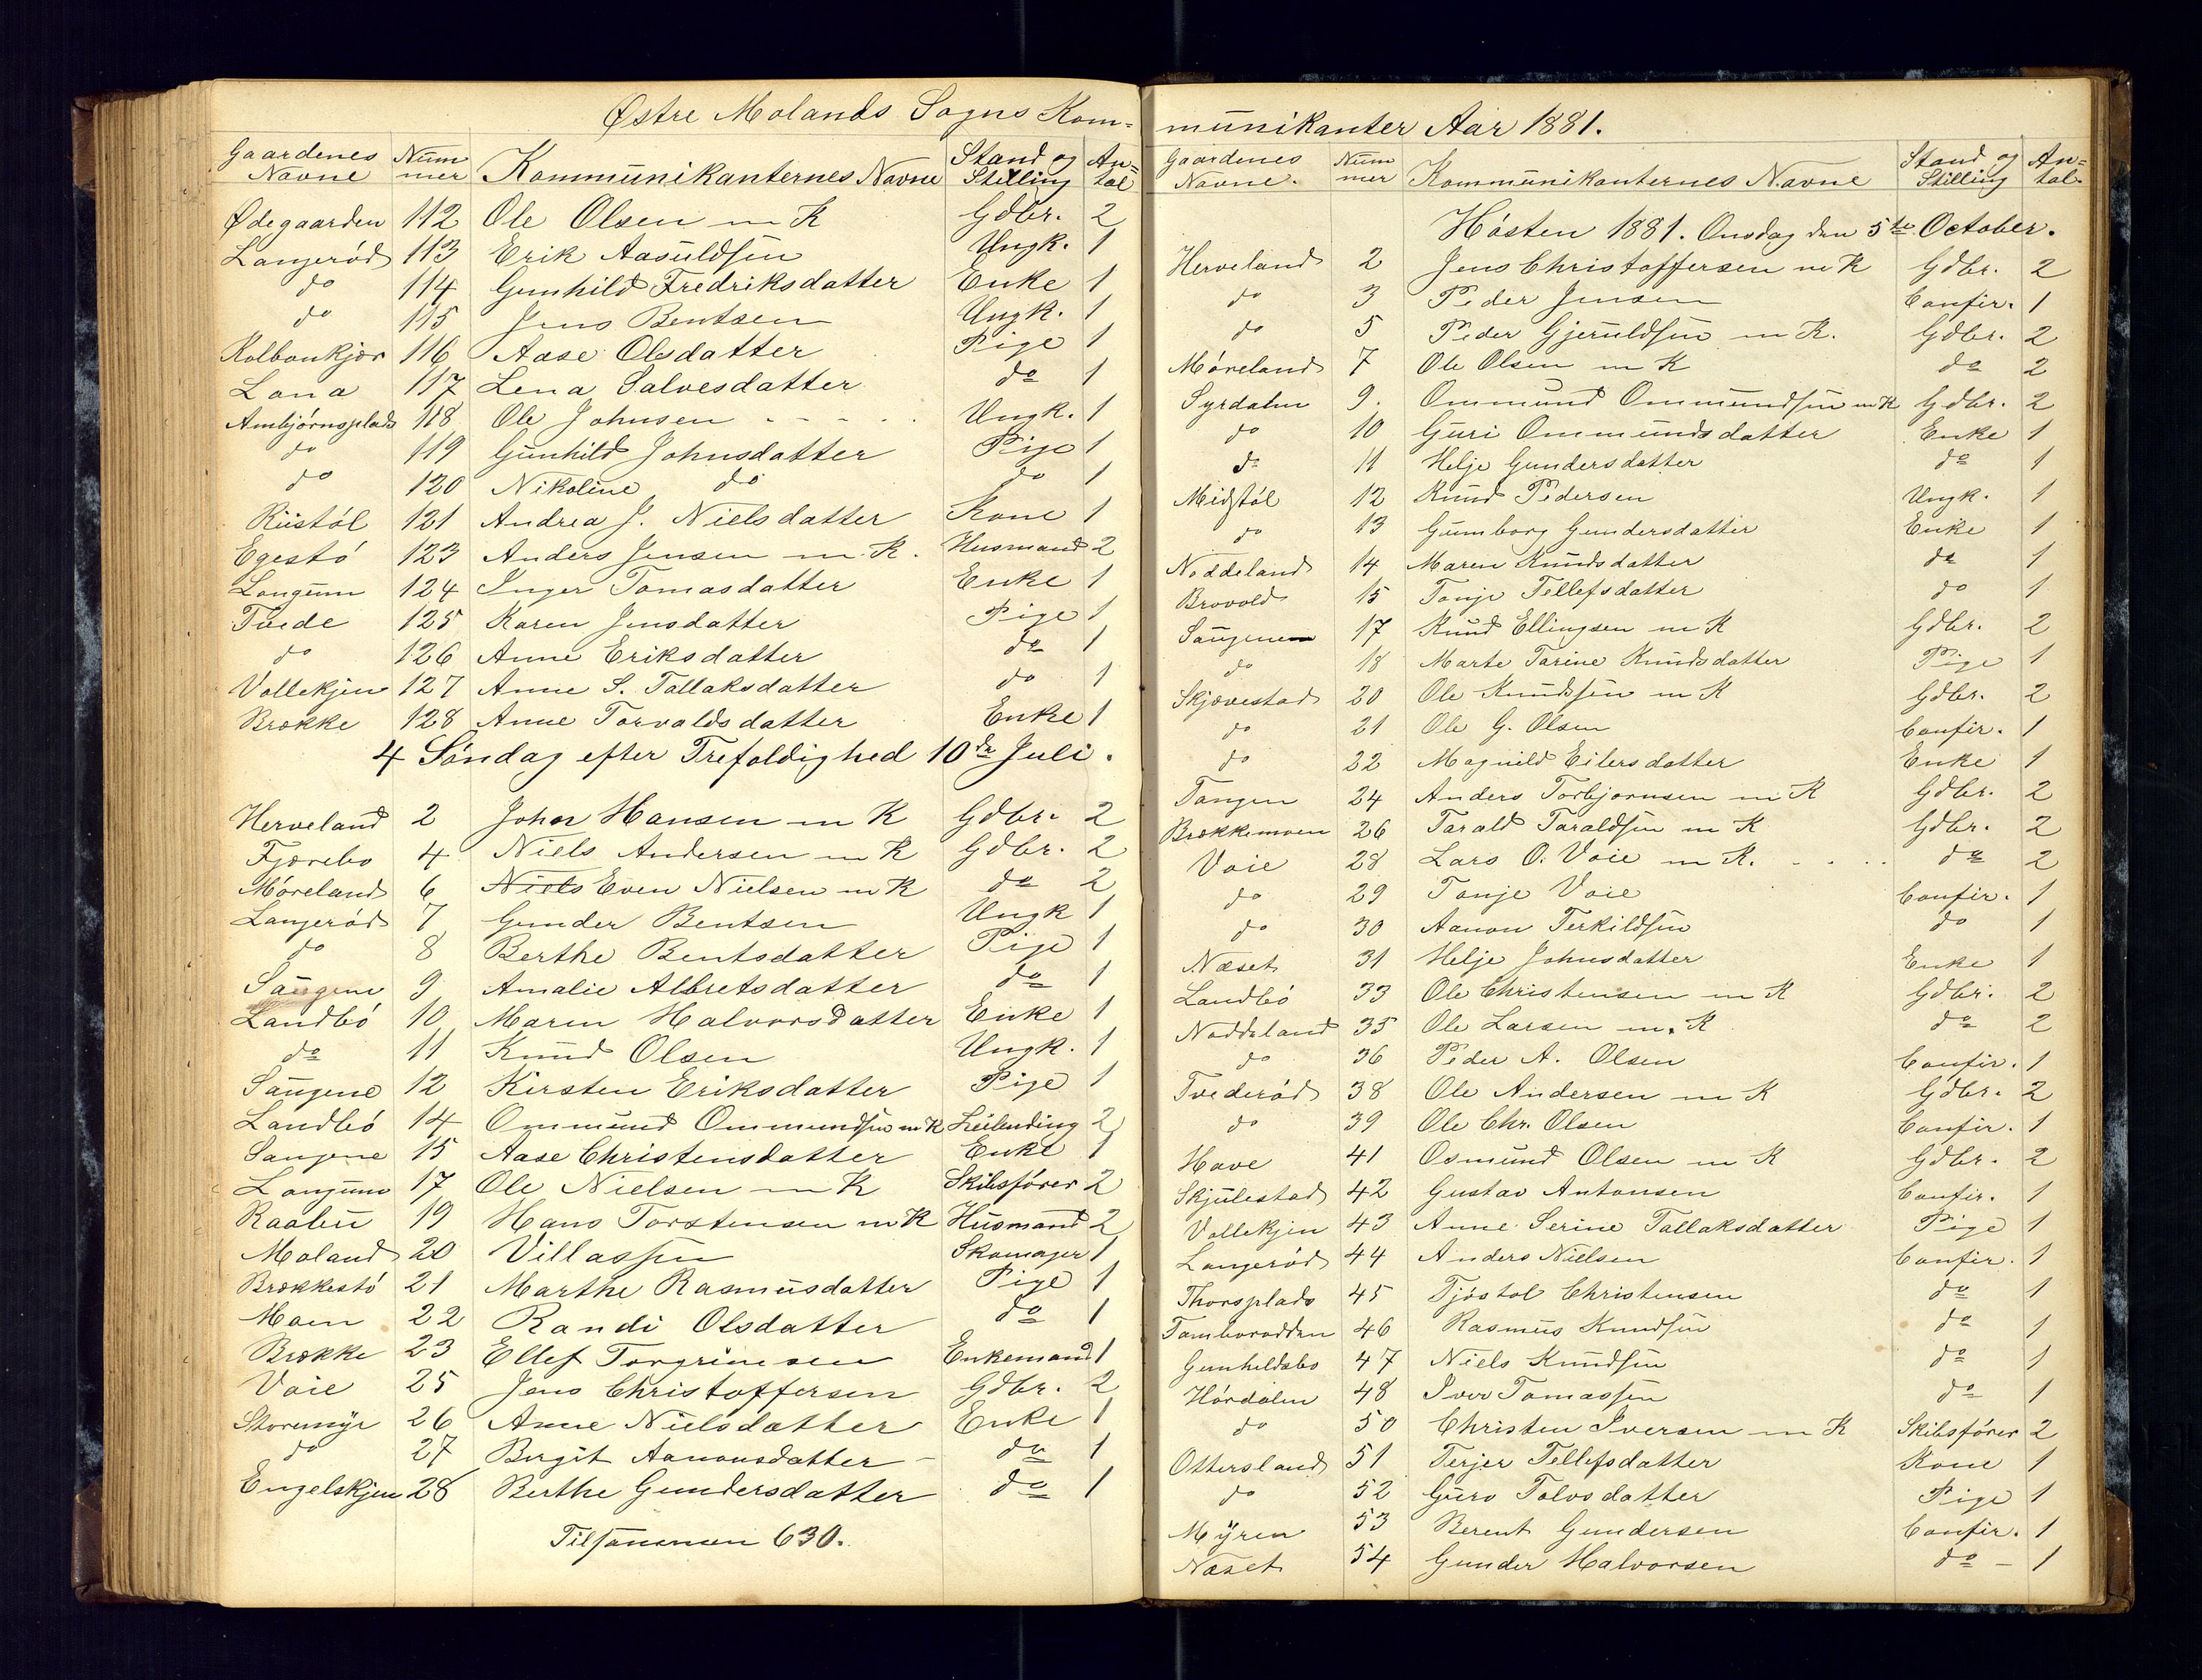 Østre Molands Sogns Kom-
Gaardenes Navne Num mer Kommunikanternes Navne Stand og Stilling An= tal
Ødegaarden 112 Ole Olsen m K Gdbr. 2
Langerød 113 Erik Aasuldsen Ungk. 1
do 114 Gunhild Fredriksdatter Enke 1
do 115 Jens Bentsen Ungk. 1
Kolbankjær 116 Aase Olsdatter Pige 1
Lona 117 Lena Salvesdatter do 1
Ambjörnsplads 118 Ole Johnsen Ungk. 1
do 119 Gunhild Johnsdatter Pige 1
do 120 Nikoline do do 1
Riistöl 121 Andrea J. Nielsdatter Kone 1
Egestö 123 Anders Jensen m. K. Husmand 2
Longum 124 Inger Tomasdatter Enke 1
Tvede 125 Karen Jensdatter Pige 1
do 126 Anne Eriksdatter do 1
Vollekjen 127 Anne S. Tallaksdatter do 1
Brække 128 Anne Torvaldsdatter Enke 1
4 Söndag efter Trefoldighed 10de Juli.
Herveland 2 John Hansen m K Gdbr. 2
Fjærebo 4 Niels Andersen m K Gdbr. 2
Möreland 6 Niels Even Nielsen m K do 2
Langerød 7 Gunder Bentsen Ungk 1
do 8 Berthe Bentsdatter Pige 1
Saugene 9 Amalie Albretsdatter do 1
Landbö 10 Maren Halvorsdatter Enke 1
do 11 Knud Olsen Ungk. 1
Saugene 12 Kirsten Eriksdatter Pige 1
Landbö 14 Ommund Ommundsen m K Leilending 2
Saugene 15 Aase Christensdatter Enke 1
Longum 17 Ole Nielsen m K Skibsförer 2
Raabu 19 Hans Torstensen m K Husmand 2
Moland 20 Villassen Skomager 1
Brækkestö 21 Marthe Rasmusdatter Pige 1
Moen 22 Randi Olsdatter do 1
Brække 23 Ellef Torgrimsen Enkemand 1
Voie 25 Jens Christoffersen Gdbr. 2
Storemyr 26 Anne Nielsdatter Enke 1
do 27 Birgit Aanonsdatter do 1
Engelskjen 28 Berthe Gundersdatter do 1
Tilsammen 630.
munikanter Aar 1881.
Gaardenes Navne. Num mer Kommunikanternes Navne Stand og Stilling An= tal.
Hösten 1881. Onsdag den 5te October.
Herveland 2 Jens Christoffersen m K Gdbr. 2
do 3 Peder Jensen Confir. 1
do 5 Peder Gjeruldsen m K. Gdbr. 2
Möreland 7 Ole Olsen m K do 2
Syrdalen 9. Ommund Ommundsen m K Gdbr. 2
do 10 Guri Ommundsdatter Enke 1
do 11 Helje Gundersdatter do 1
Midstöl 12 Knud Pedersen Ungk. 1
do 13 Gunborg Gundersdatter Enke 1
Noddeland 14 Maren Knudsdatter do 1
Brovold 15 Tonje Tellefsdatter do 1
Saugene 17 Knud Ellingsen m K Gdbr. 2
do 18 Marte Tarine Knudsdatter Pige 1
Skjævestad 20 Ole Knudsen m K Gdbr. 2
do 21 Ole G. Olsen Confir. 1
do 22 Magnild Eilersdatter Enke 1
Tangen 24 Anders Torbjornsen m K Gdbr. 2
Brækkemoen 26 Tarald Taraldsen m K Gdbr. 2
Voie 28 Lars O. Voie m K. do 2
do 29 Tonje Voie Confir. 1
do 30 Aanon Terkildsen do 1
Næset 31 Helje Johnsdatter Enke 1
Landbö 33 Ole Christensen m K Gdbr. 2
Noddeland 35 Ole Larsen m. K do 2
do 36 Peder A. Olsen Confir. 1
Tvederöd 38 Ole Andersen m K Gdbr. 2
do 39 Ole Chr. Olsen Confir. 1
Have 41 Osmund Olsen m K Gdbr. 2
Skjulestad 42 Gustav Antonsen Confir. 1
Vollekjen 43 Anne Serine Tallaksdatter Pige 1
Langerød 44 Anders Nielsen Confir. 1
Thorsplads 45 Tjöstol Christensen do 1
Tamborodden 46 Rasmus Knudsen do 1
Gunhildsbo 47 Niels Knudsen do 1
Hördalen 48 Iver Tomassen do 1
do 50 Christen Iversen m K Skibsförer 2
Ottersland 51 Terjer Tellefsdatter Kone 1
do 52 Guro Tolvsdatter Pige 1
Myren 53 Berent Gundersen Confir. 1
Næset 54 Gunder Halvorsen do 1